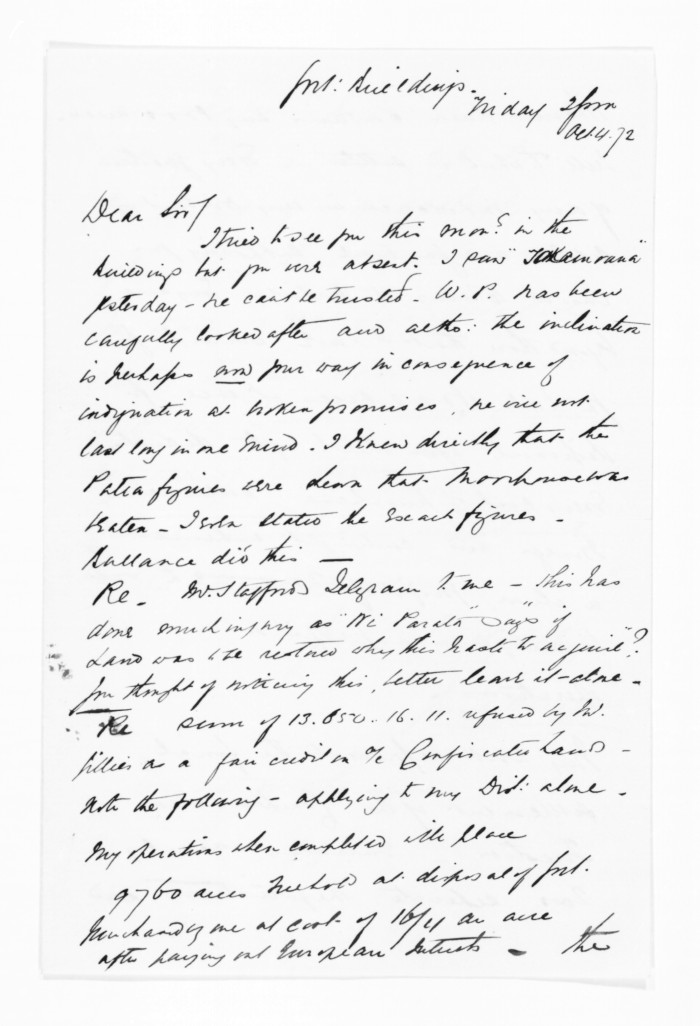 Govt: Buildings.
Friday 2 pm
Oct. 4. 72
Dear Sir/
I tried to see you this morng in the
buildings but you were absent. I saw "Takamoana"
yesterday - he cant be trusted - W. P. has been
carefully looked after and altho: the inclination
is perhaps now your way in consequence of
indignation at broken promises, he will not
last long in one mind - I knew directly that the
Patea figures were down that Moorhouse was
beaten - I even stated the exact figures -
Ballance did this —
Re - Mr. Stafford's Telegram to me - this has
done much injury as "Wi Parata" says "if
Land was to be restored why this haste to acquire"?
You thought of noticing this, better leave it alone -
Re sum of 13.850.16.11. refused by Mr.
Gillies as a fair credit on a/c Confiscated Lands -
Note the following - applying to my Dist: alone -
My operations when completed will place
9760 acres freehold at disposal of Govt.
purchased by me at cost of 16/11 an acre
after paying out European Interests - the